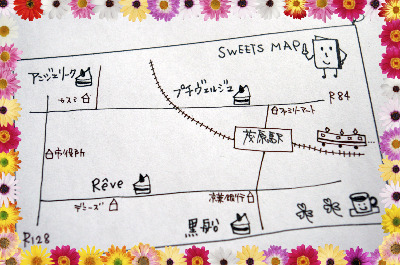 SWEETS MAP
アンジェリーク
プチヴェルジェ
カスミ
R84
ファミリーマート
茂原駅
市役所
Rêve
デニーズ
京葉銀行
黒船
R128